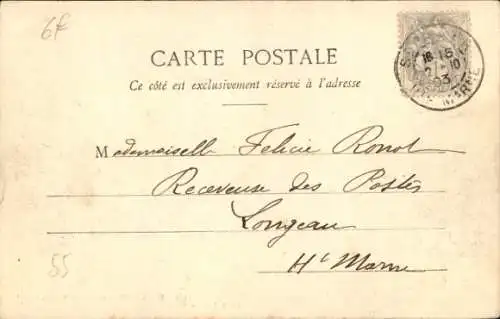 6f
CARTE POSTALE
Ce côté est exclusivement réservé à l'adresse
18 15
2 - 10
03
MARNE
Mademoiselle Felicie Ronot
Receveuse des Postes
Longeau
Hte Marne
55